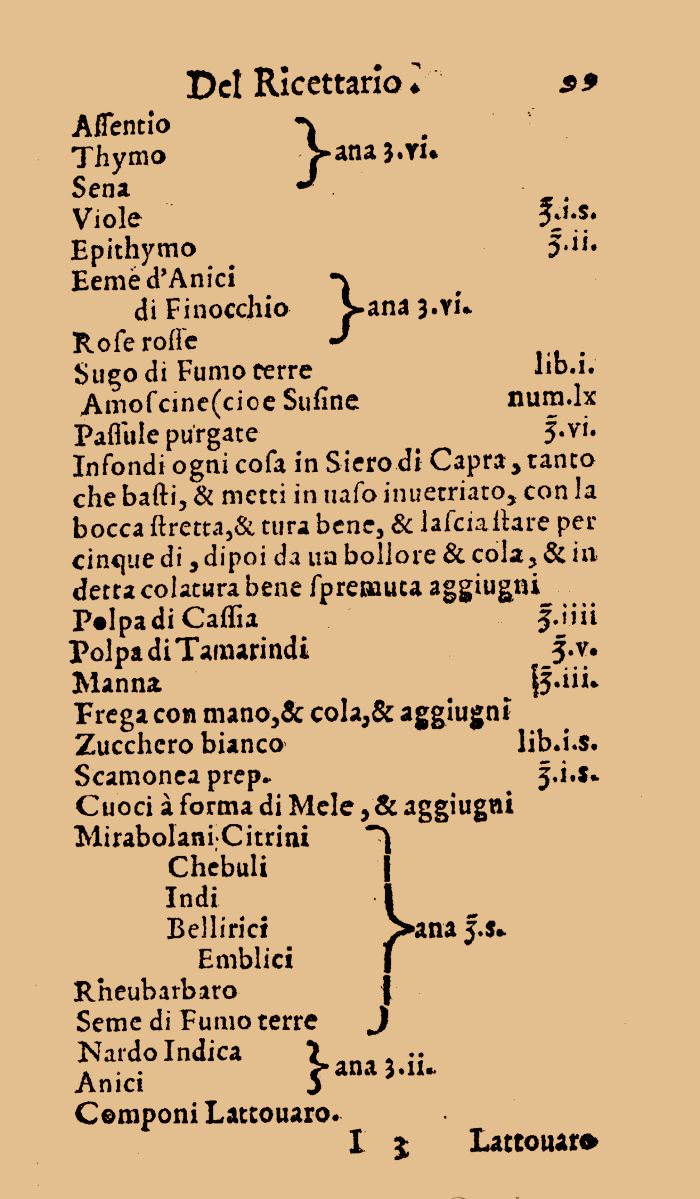 Del Ricettario. 99
Aſſentio
Thymo } ana ʒ.vi.
Sena
Viole ℥.i.s.
Epithymo ℥.ii.
Eeme d'Anici
di Finocchio } ana ʒ.vi.
Roſe roſſe
Sugo di Fumo terre lib.i.
Amoſcine(cioe Suſine num.lx
Paſſule purgate ℥.vi.
Infondi ogni coſa in Siero di Capra, tanto
che baſti, & metti in uaſo inuetriato, con la
bocca ſtretta,& tura bene, & laſcia ſtare per
cinque di, dipoi da un bollore & cola, & in
detta colatura bene ſpremuta aggiugni
Polpa di Caſſia ℥.iiii
Polpa di Tamarindi ℥.v.
Manna ℥.iii.
Frega con mano,& cola,& aggiugni
Zucchero bianco lib.i.s.
Scamonea prep. ℥.i.s.
Cuoci à forma di Mele, & aggiugni
Mirabolani Citrini
Chebuli
Indi
Bellirici } ana ℥.s.
Emblici
Rheubarbaro
Seme di Fumo terre
Nardo Indica } ana ʒ.ii.
Anici
Componi Lattouaro.
I 3 Lattouaro